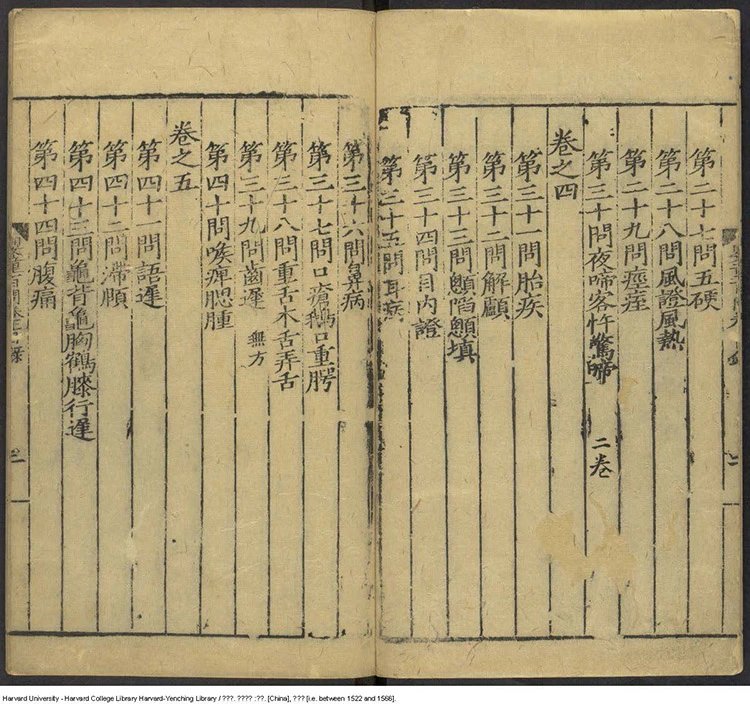 第二十七問五硬
第二十八問風證風熱
第二十九問痙痓
第三十問夜啼客忤驚啼 二卷
卷之四
第三十一問胎疾
第三十二問解顱
第三十三問顖陷顖填
第三十四問目內證
第三十五問耳病
第三十六問鼻病
第三十七問口瘡鵝口重腭
第三十八問重舌木舌弄舌
第三十九問齒遲 無方
第四十問喉痺腮腫
卷之五
第四十一問語遲
第四十二問滯頤
第四十三問龜背龜胸鶴膝行遲
第四十四問腹痛
Harvard University - Harvard College Library Harvard-Yenching Library / ???. ???? :??. [China], ??? [i.e. between 1522 and 1566].